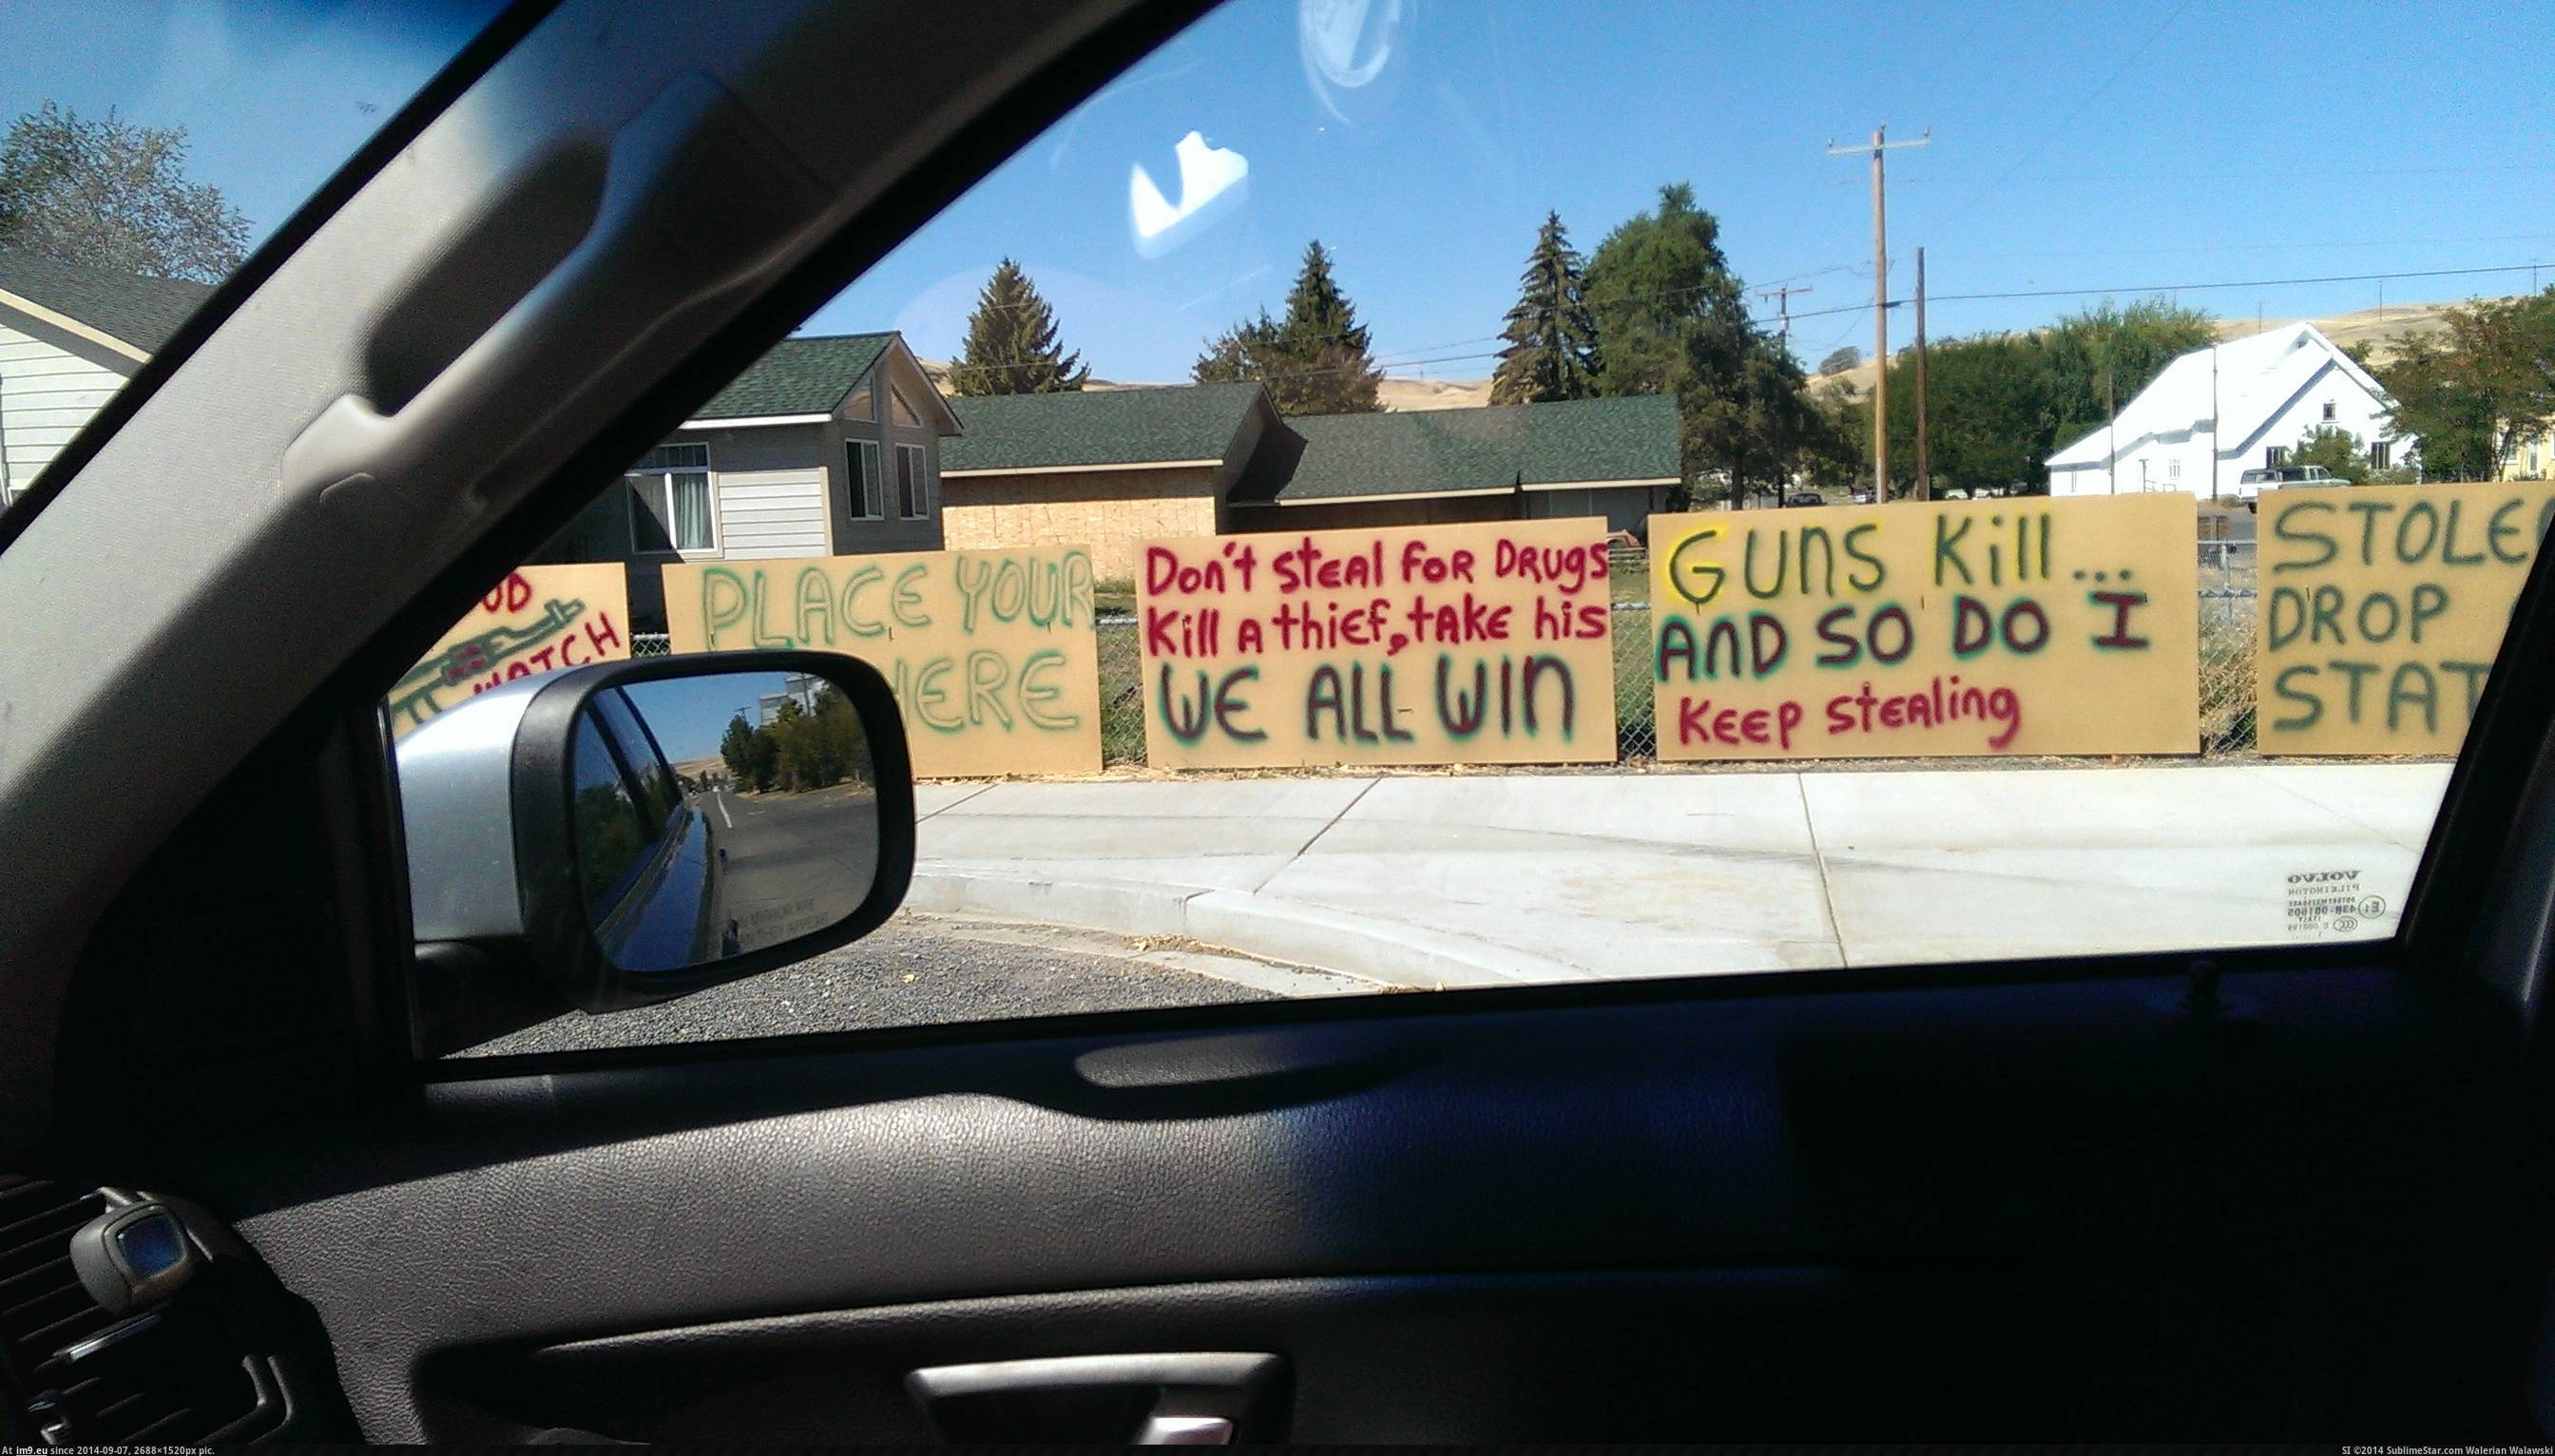 WATCH
PLACE YOUR
HERE
Don't steal for Drugs
Kill a thief, take his
WE ALL WIN
GUNS Kill...
AND SO DO I
Keep stealing
STOLE
DROP
STAT
VOLVO
PILKINGTON
At im9.eu since 2014-09-07, 2688×1520px pic.
SI ©2014 SublimeStar.com Walerian Walawski